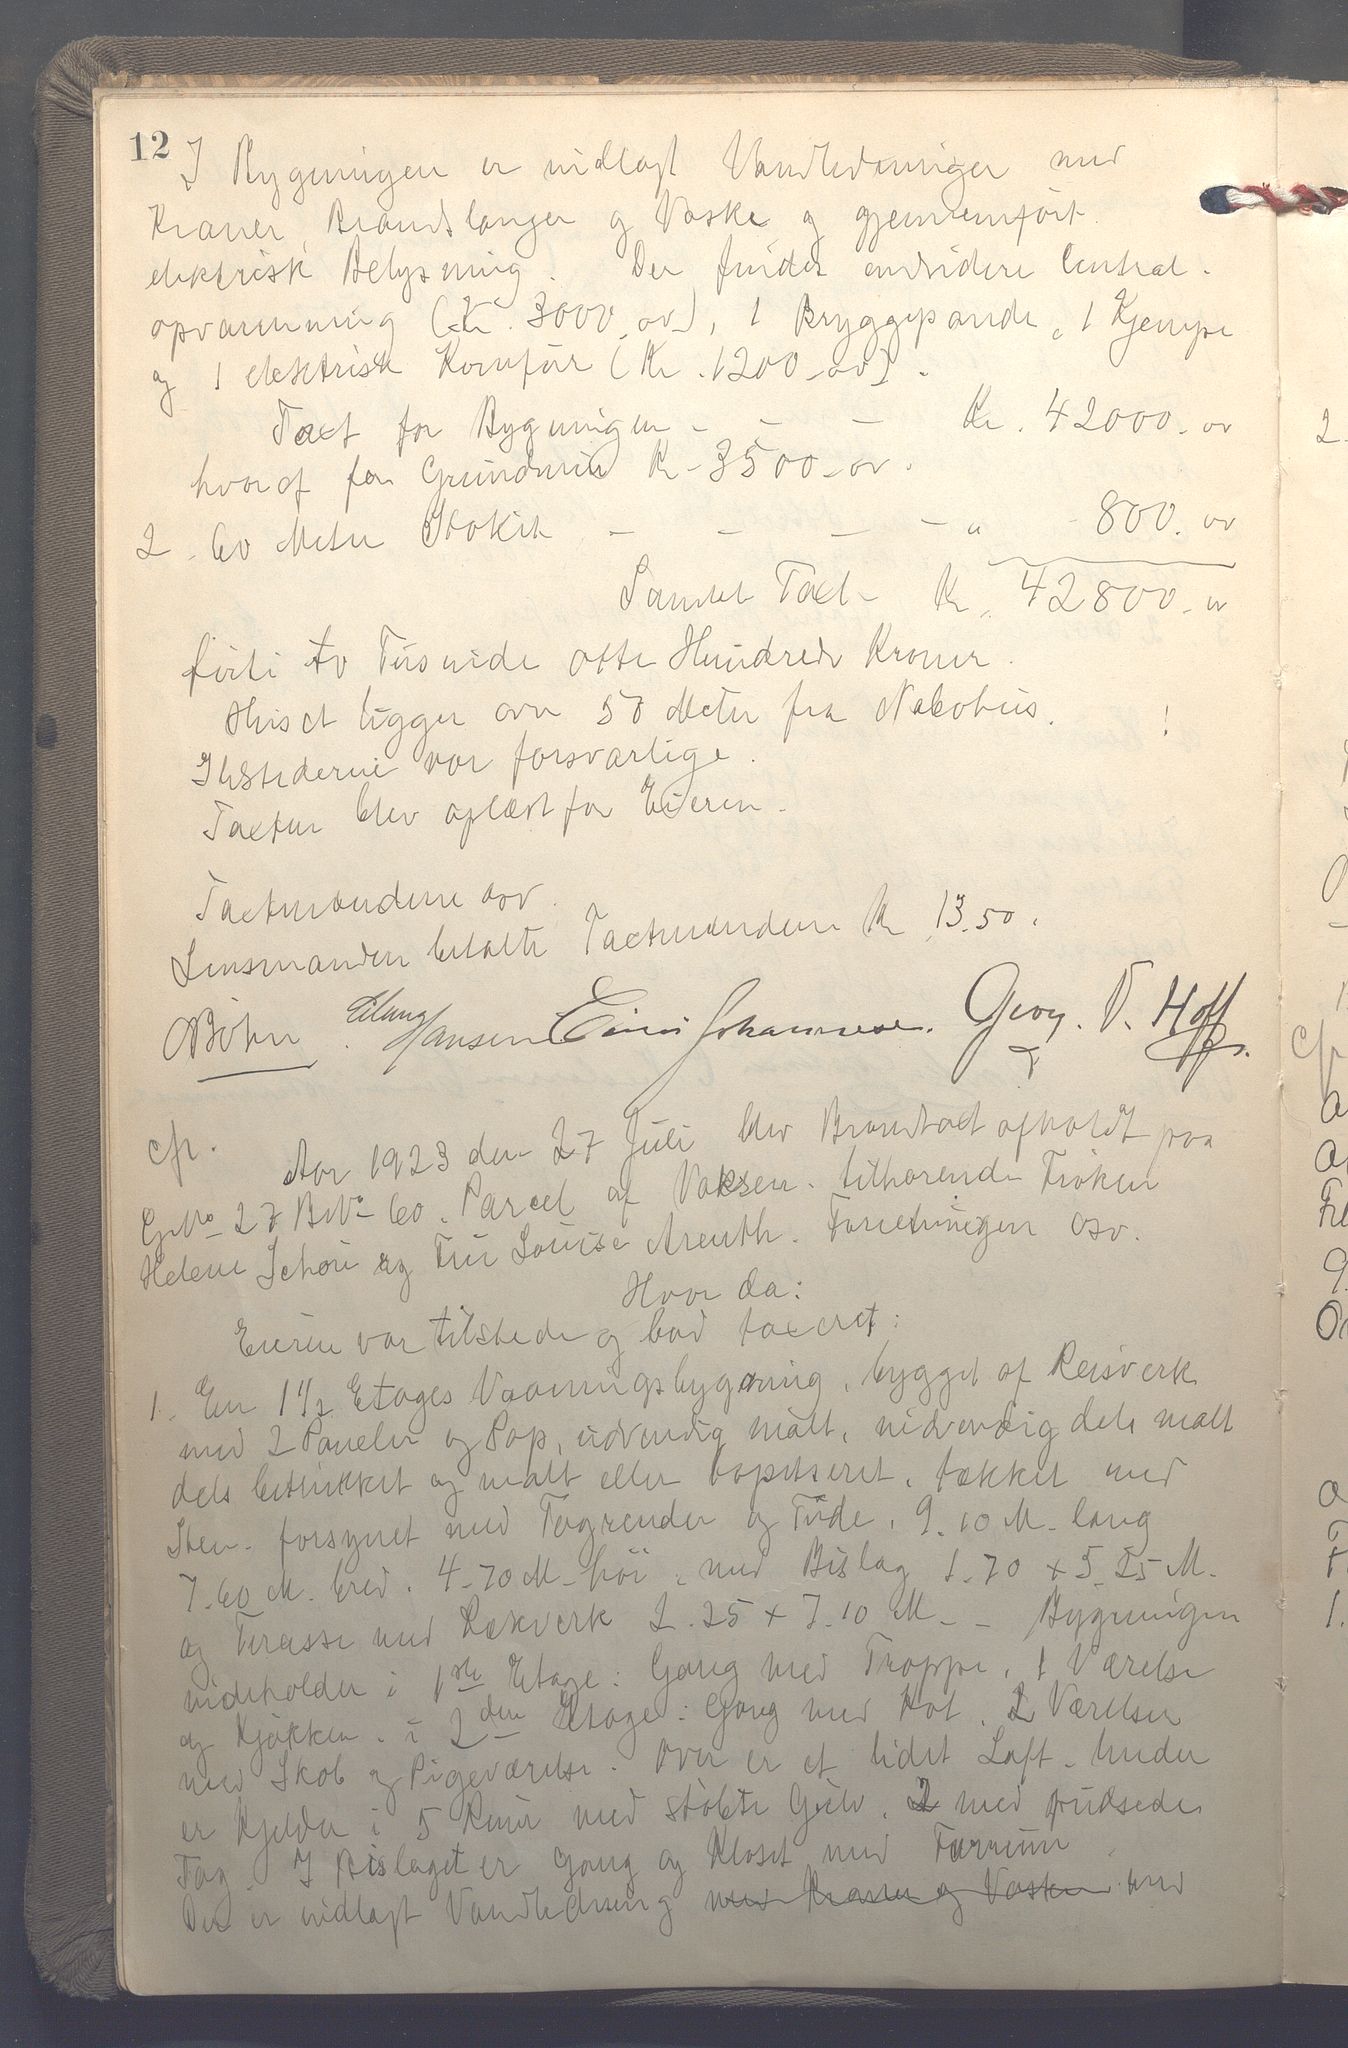 12
I Bygningen er indlagt Vandledninger med
Kraner Brandslanger og Vaske og gjennemført
elektrisk Belysning. Der findes endvidere Central-
opvarmning (Kr. 3000.00), 1 Bryggepande, 1 Kjempe
og 1 elektrisk Komfür (Kr. 1200.00).
Taxt for Bygningen - - - Kr. 42000.00
hvoraf for Grundmur Kr 3500.00.
2. 60 Meter Stakit - - - - " - 800.00
Samlet Taxt - Kr. 42800.00
førti to Tusinde otte Hundrede Kroner.
Huset ligger over 50 Meter fra Nabohus. !
Ildstederne var forsvarlige.
Taxten blev oplæst for Eieren.
Taxtmændene osv.
Lensmanden betalte Taxtmændene Kr 13.50.
Bøhn. Hansen Johannesen. Georg. V. Hoff
cfr. Aar 1923 den 27 Juli blev Brandtaxt afholdt paa
Gno 27 Bno 60. Parcel af Vaksen. tilhørende Frøken
Helene Schou og Fru Louise Arenth. Forretningen osv.
Hvor da:
Eieren var tilstede og bad taxeret:
1. En 1 1/2 Etages Vaaningsbygning, bygget af Reisverk
med 2 Paneler og Pap, udvendig malt, indvendig dels malt
dels betrukket og malt eller tapetseret, tækket med
Sten. forsynet med Tagrender og Tüde. 9.10 M. lang
7.60 M. bred. 4.70 M. høi, med Bislag 1.70 x 5.25 M.
og Terasse med Rækverk 2.25 x 7.10 M. - Bygningen
indeholder i 1ste Etage: Gang med Trappe, 1 Værelse
og Kjøkken. i 2den Etage: Gang med Kot. 2 Værelser
med Skab og Pigeværelse. Over er et lidet Loft. Under
er Kjelder i 5 Rum med støbte Gulv. 2 med pudsede
Tag. I Bislaget er Gang og Kloset med
Der er indlagt Vandledning med Kraner og Vasker med